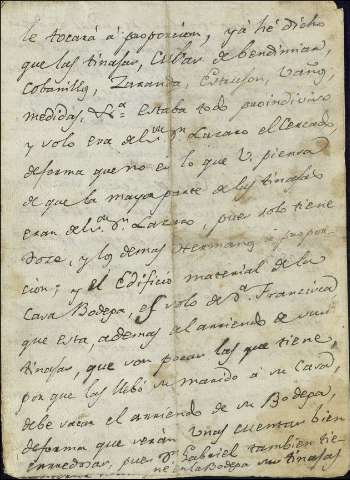 le tocará á proporcion, yá hé dicho
que las tinajas, Cubas de bendimiar,
Cobanillo, Zaranda, Estrujon, Vaño,
medidas, &.ª estaba todo proindiviso
y solo era del S.or D.n Lazaro el Cercado
deforma que no es lo que V. piensa
de que la mayor parte de las tinajas
eran del S.or D.n Lazaro, pues solo tiene
doze, y los demas Hermanos á propor-
cion; y el Edificio material de la
Casa Bodega, es solo de D.ª Francisca
que esta, ademas al arriendo de sus
tinajas, que son pocas las que tiene,
por que las llebó su marido á su Casa,
debe sacar el arriendo de su Bodega,
deforma que serán unas cuentas bien
enrredosas, pues D.n Gabriel tambien tie-
ne en la Bodega sus tinajas